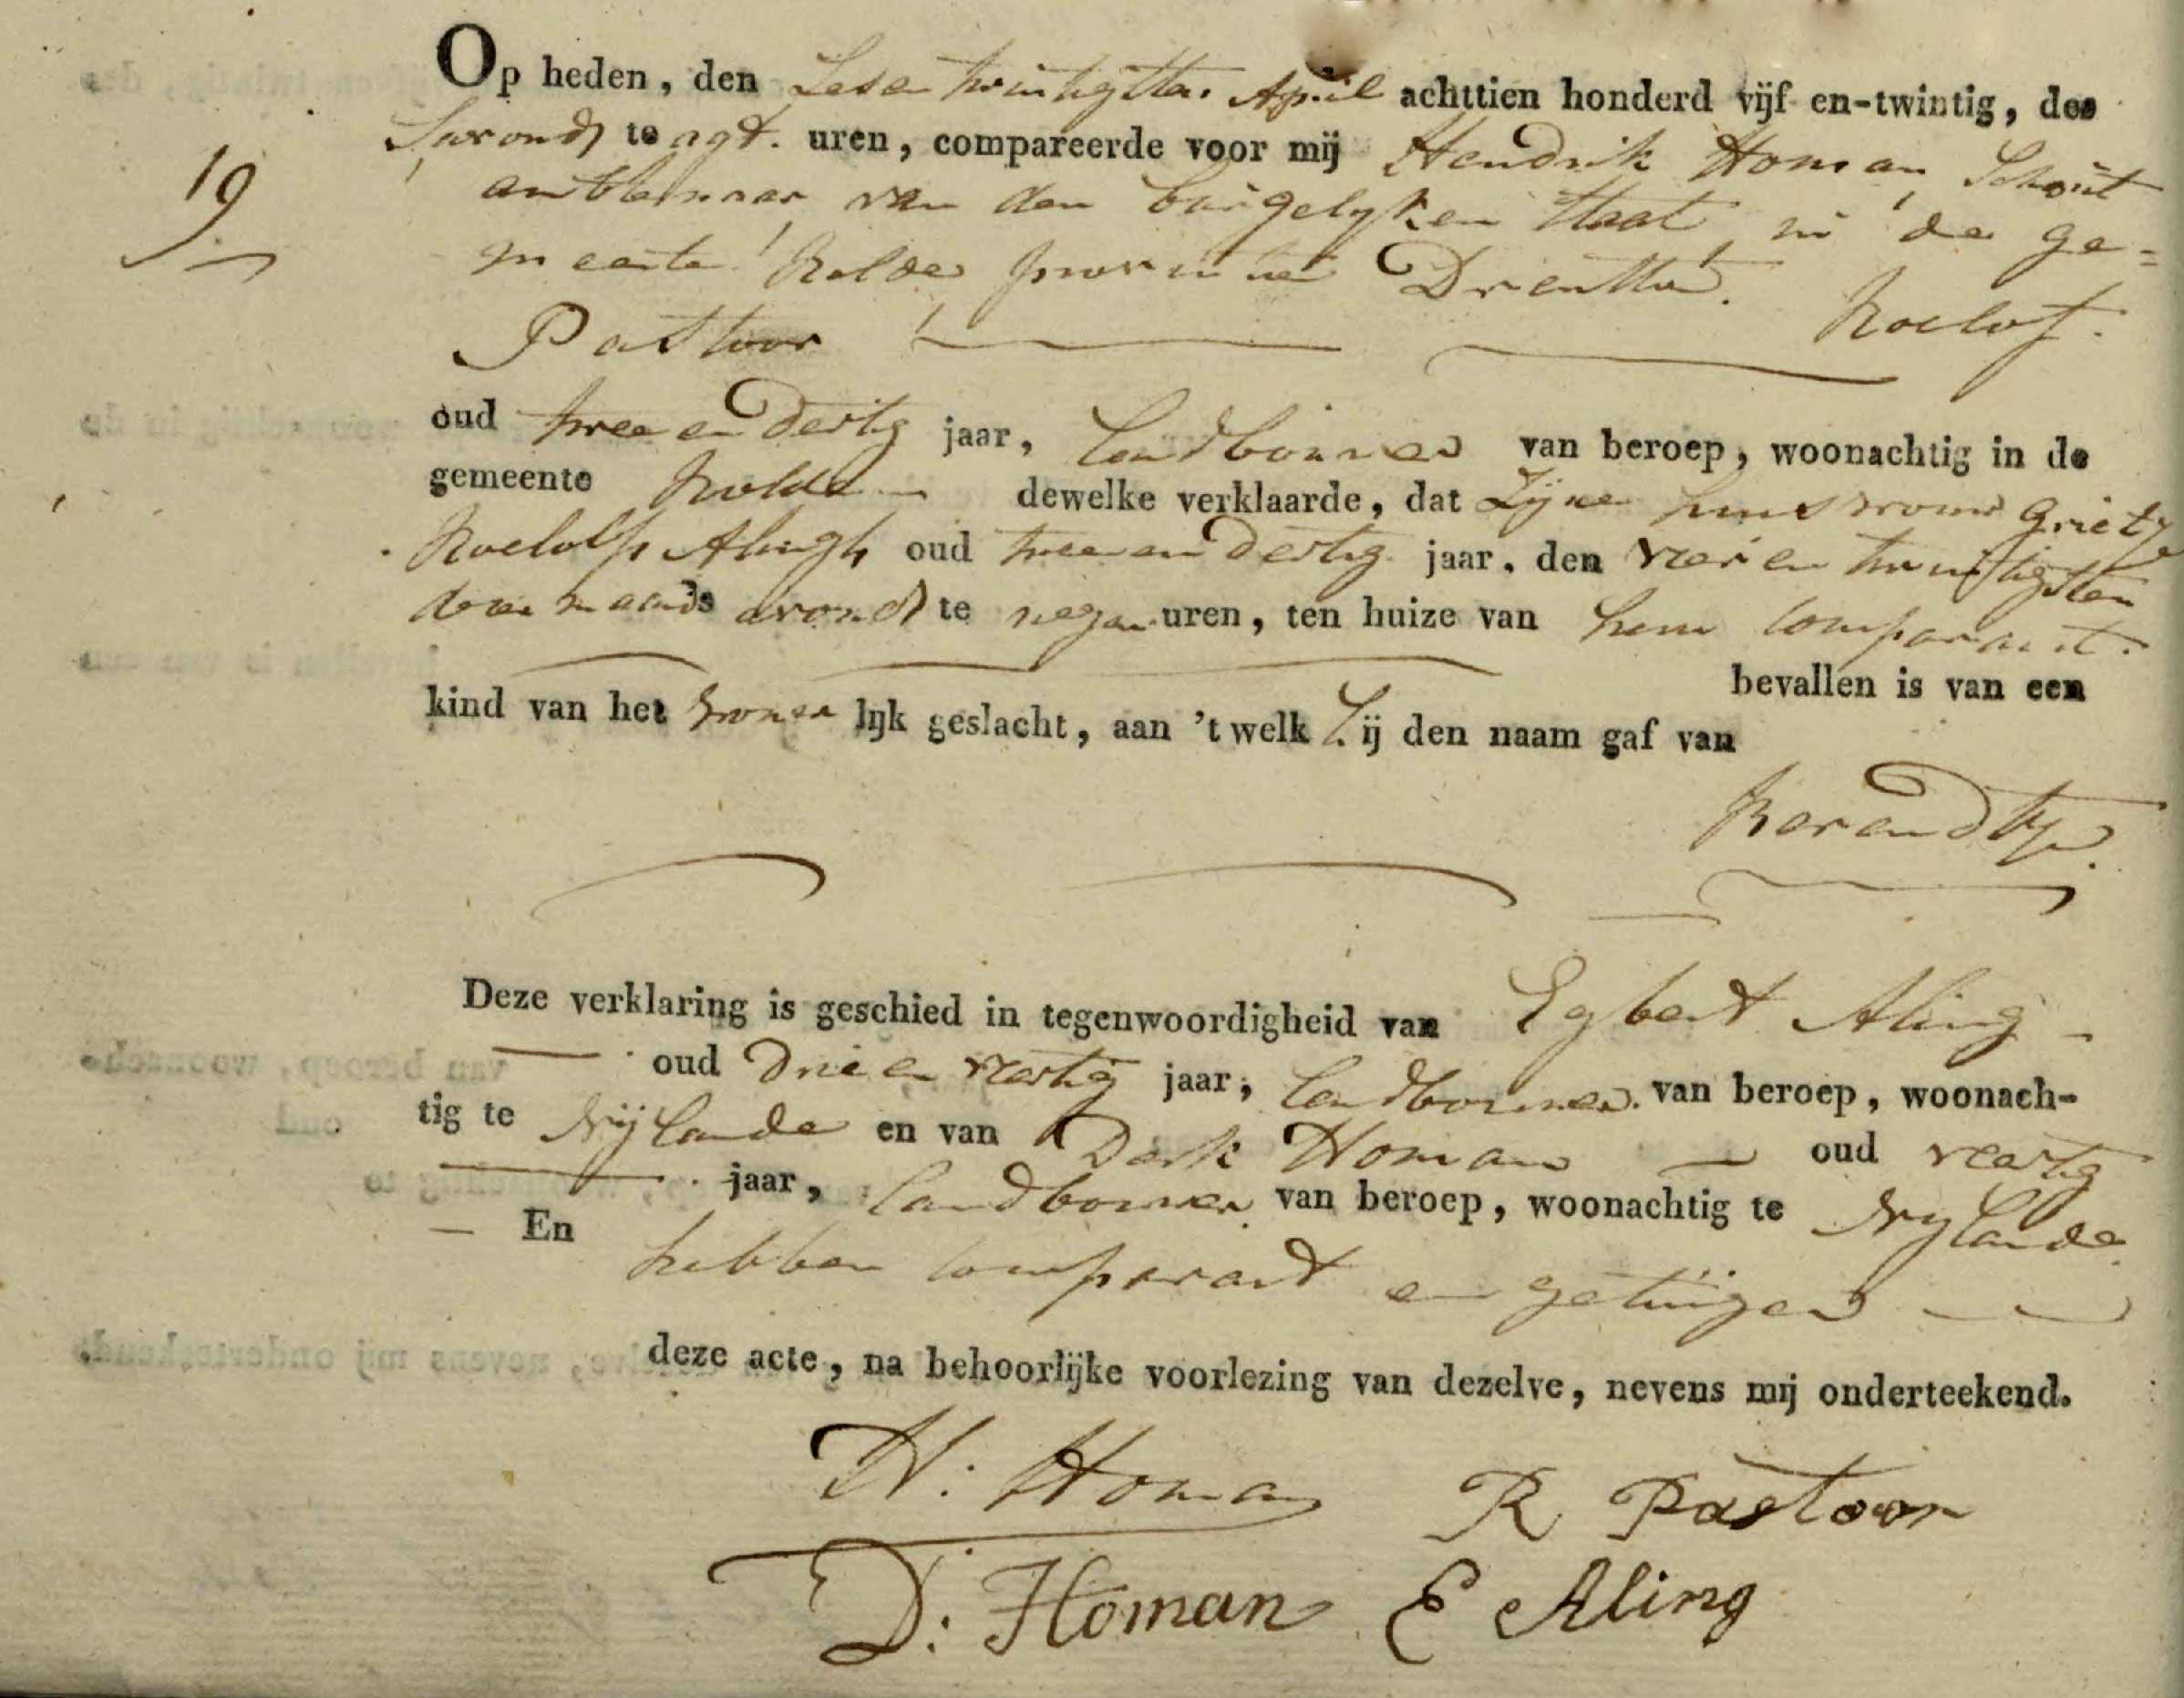 Op heden, den Zesen twintigsten April achttien honderd vijf en-twintig, des
19
Savonds te agt. uren, compareerde voor mij Hendrik Homan, Schout
ambtenaar van den burgelyken Staat, in de ge=
meente Rolde provintie Drenthe. Roelof.
Pastoor
oud twee en Dertig jaar, Landbouwer van beroep, woonachtig in de
gemeente Rolde dewelke verklaarde, dat Zijne huisvrouw Grietje
Roelofs Alingh oud twee en Dertig jaar, den vier en twintigsten
dezer maands avonds te negen uren, ten huize van hem Comparant.
bevallen is van een
kind van het vrouwe lijk geslacht, aan 't welk Zij den naam gaf van
Barendtje
Deze verklaring is geschied in tegenwoordigheid van Egbert Aling
oud Drie en veertig jaar, Landbouwer van beroep, woonach-
tig te Nijlande en van Derk Homan oud veertig
jaar, Landbouwer van beroep, woonachtig te Nijlande
En hebben Comparant en getuigen
deze acte, na behoorlijke voorlezing van dezelve, nevens mij onderteekend.
H: Homan R Pastoor
D: Homan E Aling